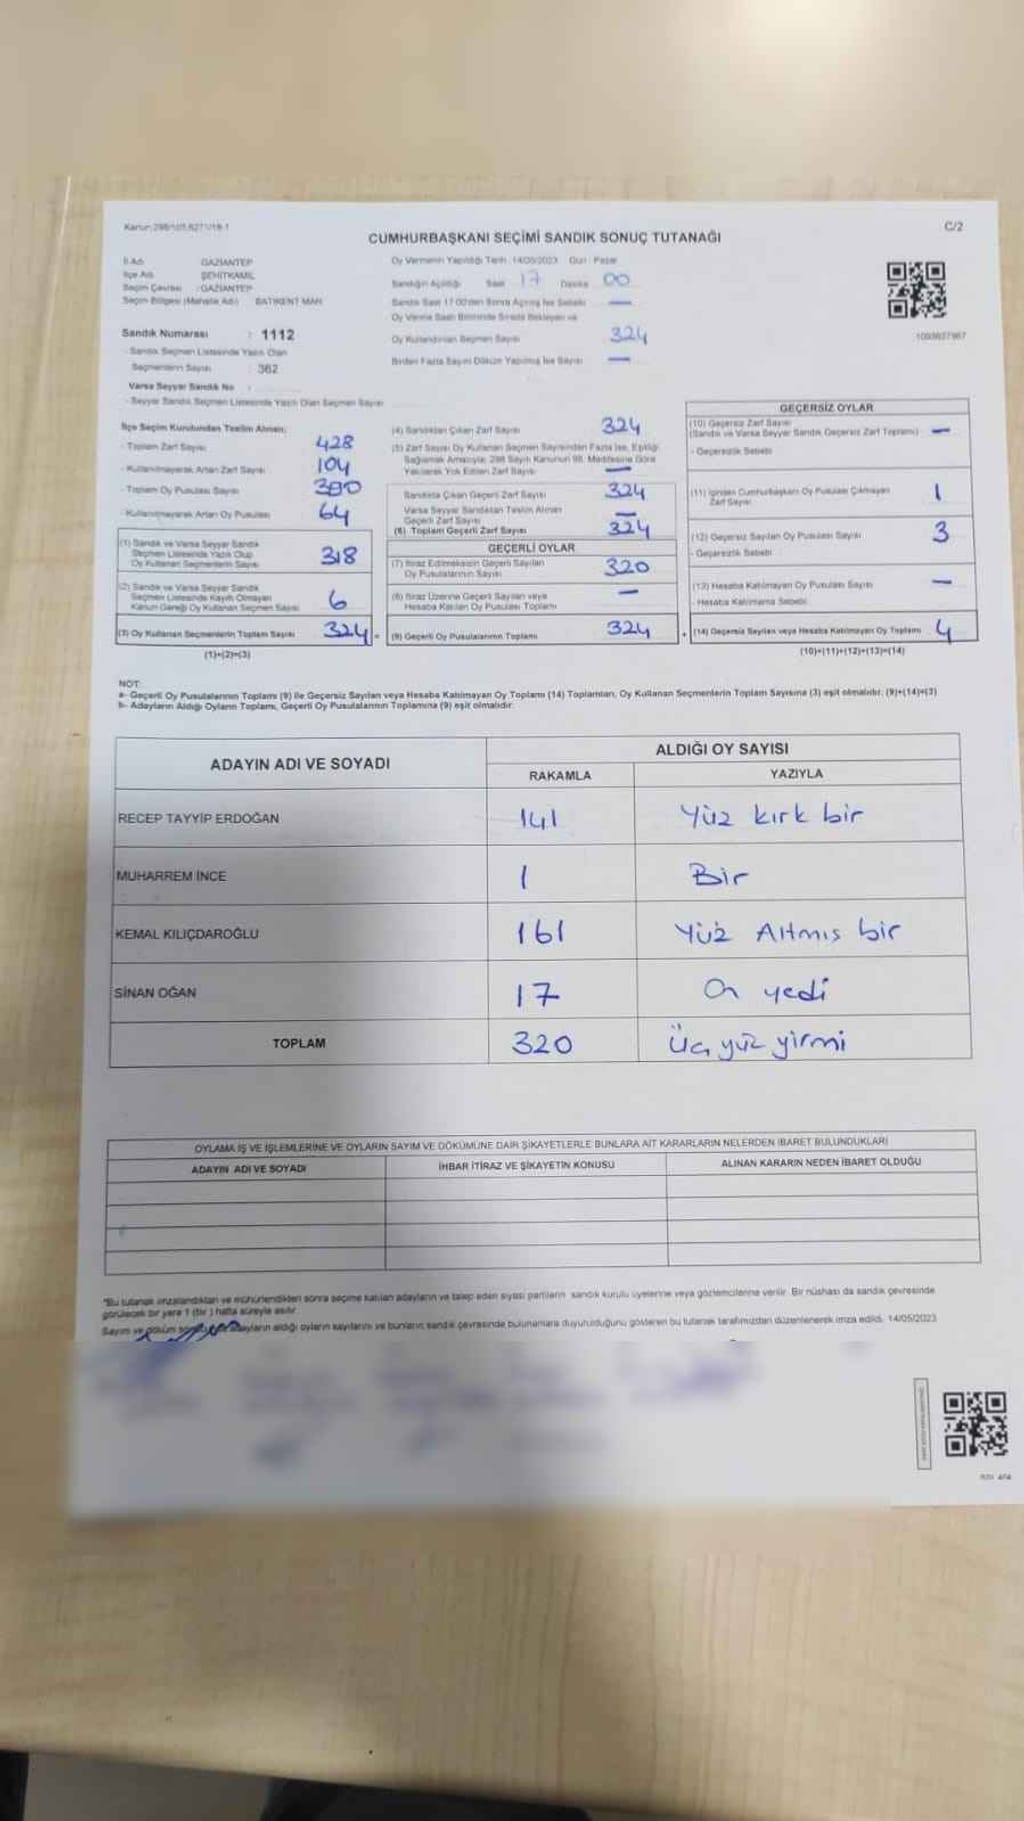 C/2
CUMHURBAŞKANI SEÇİMİ SANDIK SONUÇ TUTANAĞI
İl Adı GAZİANTEP
İlçe Adı ŞEHİTKAMİL
Seçim Çevresi : GAZİANTEP
Seçim Bölgesi (Mahalle Adı) BATIKENT MAH.
Sandık Numarası : 1112
- Sandık Seçmen Listesinde Yazılı Olan
Seçmenlerin Sayısı 362
Varsa Seyyar Sandık No :
- Seyyar Sandık Seçmen Listesinde Yazılı Olan Seçmen Sayısı
Oy Vermenin Yapıldığı Tarih 14/05/2023 Gün Pazar
Sandığın Açıldığı Saat 17 Dakika 00
Sandık Saat 17:00'den Sonra Açılmış İse Sebebi —
Oy Verme Saati Bitiminde Sırada Bekleyen ve
Oy Kullandırılan Seçmen Sayısı 324
Birden Fazla Sayım Döküm Yapılmış İse Sayısı —
İlçe Seçim Kurulundan Teslim Alınan;
- Toplam Zarf Sayısı 428
- Kullanılmayarak Artan Zarf Sayısı 104
- Toplam Oy Pusulası Sayısı 390
- Kullanılmayarak Artan Oy Pusulası 64
(1) Sandık ve Varsa Seyyar Sandık
Seçmen Listesinde Yazılı Olup
Oy Kullanan Seçmenlerin Sayısı 318
(2) Sandık ve Varsa Seyyar Sandık
Seçmen Listesinde Kayıtlı Olmayan
Kanun Gereği Oy Kullanan Seçmen Sayısı 6
(3) Oy Kullanan Seçmenlerin Toplam Sayısı 324 =
(1)+(2)=(3)
(4) Sandıktan Çıkan Zarf Sayısı 324
(5) Zarf Sayısı Oy Kullanan Seçmen Sayısından Fazla İse, Eşitliği
Sağlamak Amacıyla; 298 Sayılı Kanunun 98. Maddesine Göre
Yakılarak Yok Edilen Zarf Sayısı —
Sandıkta Çıkan Geçerli Zarf Sayısı 324
Varsa Seyyar Sandıktan Teslim Alınan
Geçerli Zarf Sayısı —
(6) Toplam Geçerli Zarf Sayısı 324
GEÇERLİ OYLAR
(7) İtiraz Edilmeksizin Geçerli Sayılan
Oy Pusulalarının Sayısı 320
(8) İtiraz Üzerine Geçerli Sayılan veya
Hesaba Katılan Oy Pusulası Toplamı —
(9) Geçerli Oy Pusulalarının Toplamı 324 +
GEÇERSİZ OYLAR
(10) Geçersiz Zarf Sayısı
(Sandık ve Varsa Seyyar Sandık Geçersiz Zarf Toplamı) —
- Geçersizlik Sebebi
(11) İçinden Cumhurbaşkanı Oy Pusulası Çıkmayan
Zarf Sayısı 1
(12) Geçersiz Sayılan Oy Pusulası Sayısı 3
- Geçersizlik Sebebi
(13) Hesaba Katılmayan Oy Pusulası Sayısı —
- Hesaba Katılmama Sebebi
(14) Geçersiz Sayılan veya Hesaba Katılmayan Oy Toplamı 4
(10)+(11)+(12)+(13)=(14)
NOT:
a- Geçerli Oy Pusulalarının Toplamı (9) ile Geçersiz Sayılan veya Hesaba Katılmayan Oy Toplamı (14) Toplamları, Oy Kullanan Seçmenlerin Toplam Sayısına (3) eşit olmalıdır. (9)+(14)=(3)
b- Adayların Aldığı Oyların Toplamı, Geçerli Oy Pusulalarının Toplamına (9) eşit olmalıdır.
ADAYIN ADI VE SOYADI ALDIĞI OY SAYISI
RAKAMLA YAZIYLA
RECEP TAYYİP ERDOĞAN 141 Yüz kırk bir
MUHARREM İNCE 1 Bir
KEMAL KILIÇDAROĞLU 161 Yüz Altmıs bir
SİNAN OĞAN 17 On yedi
TOPLAM 320 Üç yüz yirmi
OYLAMA İŞ VE İŞLEMLERİNE VE OYLARIN SAYIM VE DÖKÜMÜNE DAİR ŞİKAYETLERLE BUNLARA AİT KARARLARIN NELERDEN İBARET BULUNDUKLARI
ADAYIN ADI VE SOYADI İHBAR İTİRAZ VE ŞİKAYETİN KONUSU ALINAN KARARIN NEDEN İBARET OLDUĞU
*Bu tutanak imzalandıktan ve mühürlendikten sonra seçime katılan adayların ve talep eden siyasi partilerin sandık kurulu üyelerine veya gözlemcilerine verilir. Bir nüshası da sandık çevresinde
görülecek bir yere 1 (bir ) hafta süreyle asılır.
Sayım ve döküm adayların aldığı oyların sayılarını ve bunların sandık çevresinde bulunanlara duyurulduğunu gösteren bu tutanak tarafımızdan düzenlenerek imza edildi. 14/05/2023